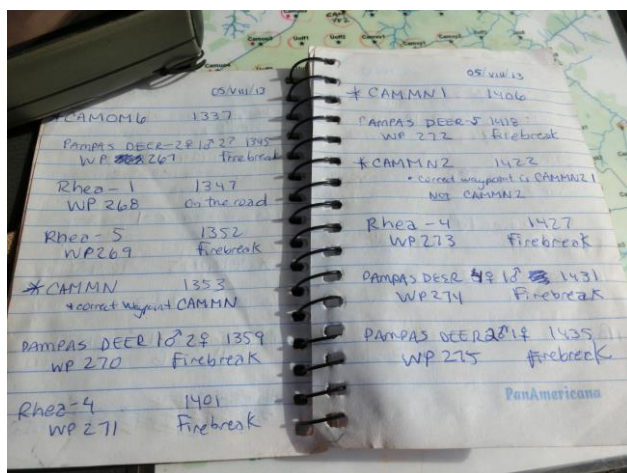 05/VIII/13
*CAMOM6 1337
PAMPAS DEER-2♀ 1♂ 2? 1345
WP 267 firebreak
Rhea-1 1347
WP 268 on the road
Rhea-5 1352
WP269 firebreak
*CAMMN 1353
*correct waypoint CAMMN
PAMPAS DEER 1♂ 2♀ 1359
WP 270 firebreak
Rhea-4 1401
WP 271 Firebreak
05/VIII/13
*CAMMN1 1406
PAMPAS DEER-5 1418
WP 272 firebreak
*CAMMN2 1422
*correct waypoint is CAMMNZ1
NOT CAMMN2
Rhea-4 1427
WP273 Firebreak
PAMPAS DEER ♀ 1♂ 1431
WP274 Firebreak
PAMPAS DEER 2♂ 1♀ 1435
WP 275 firebreak
PanAmericana